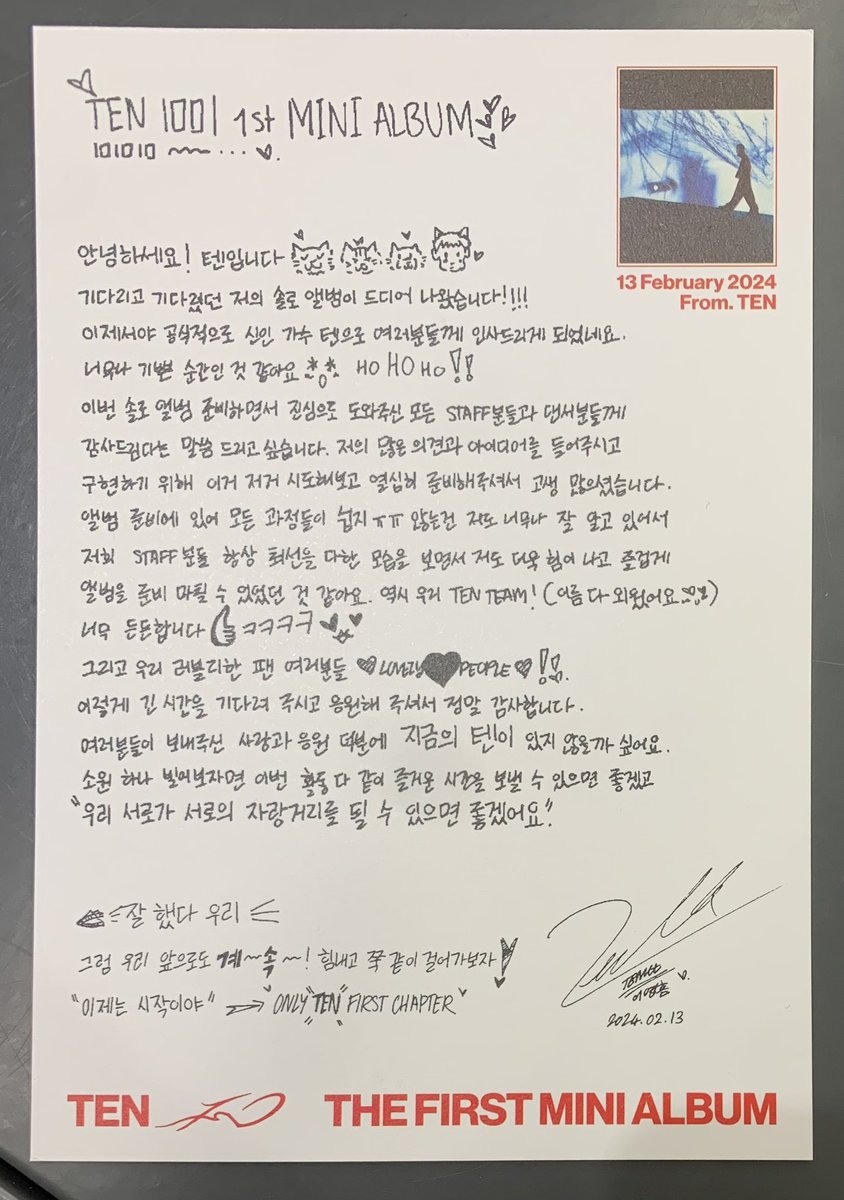 TEN 1001 1st MINI ALBUM
101010 ~ ...
13 February 2024
From. TEN
안녕하세요! 텐입니다
기다리고 기다렸던 저의 솔로 앨범이 드디어 나왔습니다!!!!
이제서야 공식적으로 신인 가수 텐으로 여러분들께 인사드리게 되었네요.
너무나 기쁜 순간인 것 같아요 HO HO HO!!
이번 솔로 앨범 준비하면서 진심으로 도와주신 모든 STAFF분들과 댄서분들께
감사드린다는 말씀 드리고 싶습니다. 저의 많은 의견과 아이디어를 들어주시고
구현하기 위해 이거 저거 시도해보고 열심히 준비해주셔서 고생 많으셨습니다.
앨범 준비에 있어 모든 과정들이 쉽지 ㅠㅠ 않는건 저도 너무나 잘 알고 있어서
저희 STAFF분들 항상 최선을 다한 모습을 보면서 저도 더욱 힘이 나고 즐겁게
앨범을 준비 마칠 수 있었던 것 같아요. 역시 우리 TEN TEAM! (이름 다 외웠어요)
너무 든든합니다 ㅋㅋㅋㅋ
그리고 우리 러블리한 팬 여러분들 ♥LOVELY♥PEOPLE♥!!
이렇게 긴 시간을 기다려 주시고 응원해 주셔서 정말 감사합니다.
여러분들이 보내주신 사랑과 응원 덕분에 지금의 텐이 있지 않을까 싶어요.
소원 하나 빌어보자면 이번 활동 다 같이 즐거운 시간을 보낼 수 있으면 좋겠고
"우리 서로가 서로의 자랑거리를 될 수 있으면 좋겠어요"
잘 했다 우리
그럼 우리 앞으로도 계~속~! 힘내고 쭉 같이 걸어가보자!
"이제는 시작이야" → ONLY "TEN" FIRST CHAPTER
이영흠
2024.02.13
TEN THE FIRST MINI ALBUM